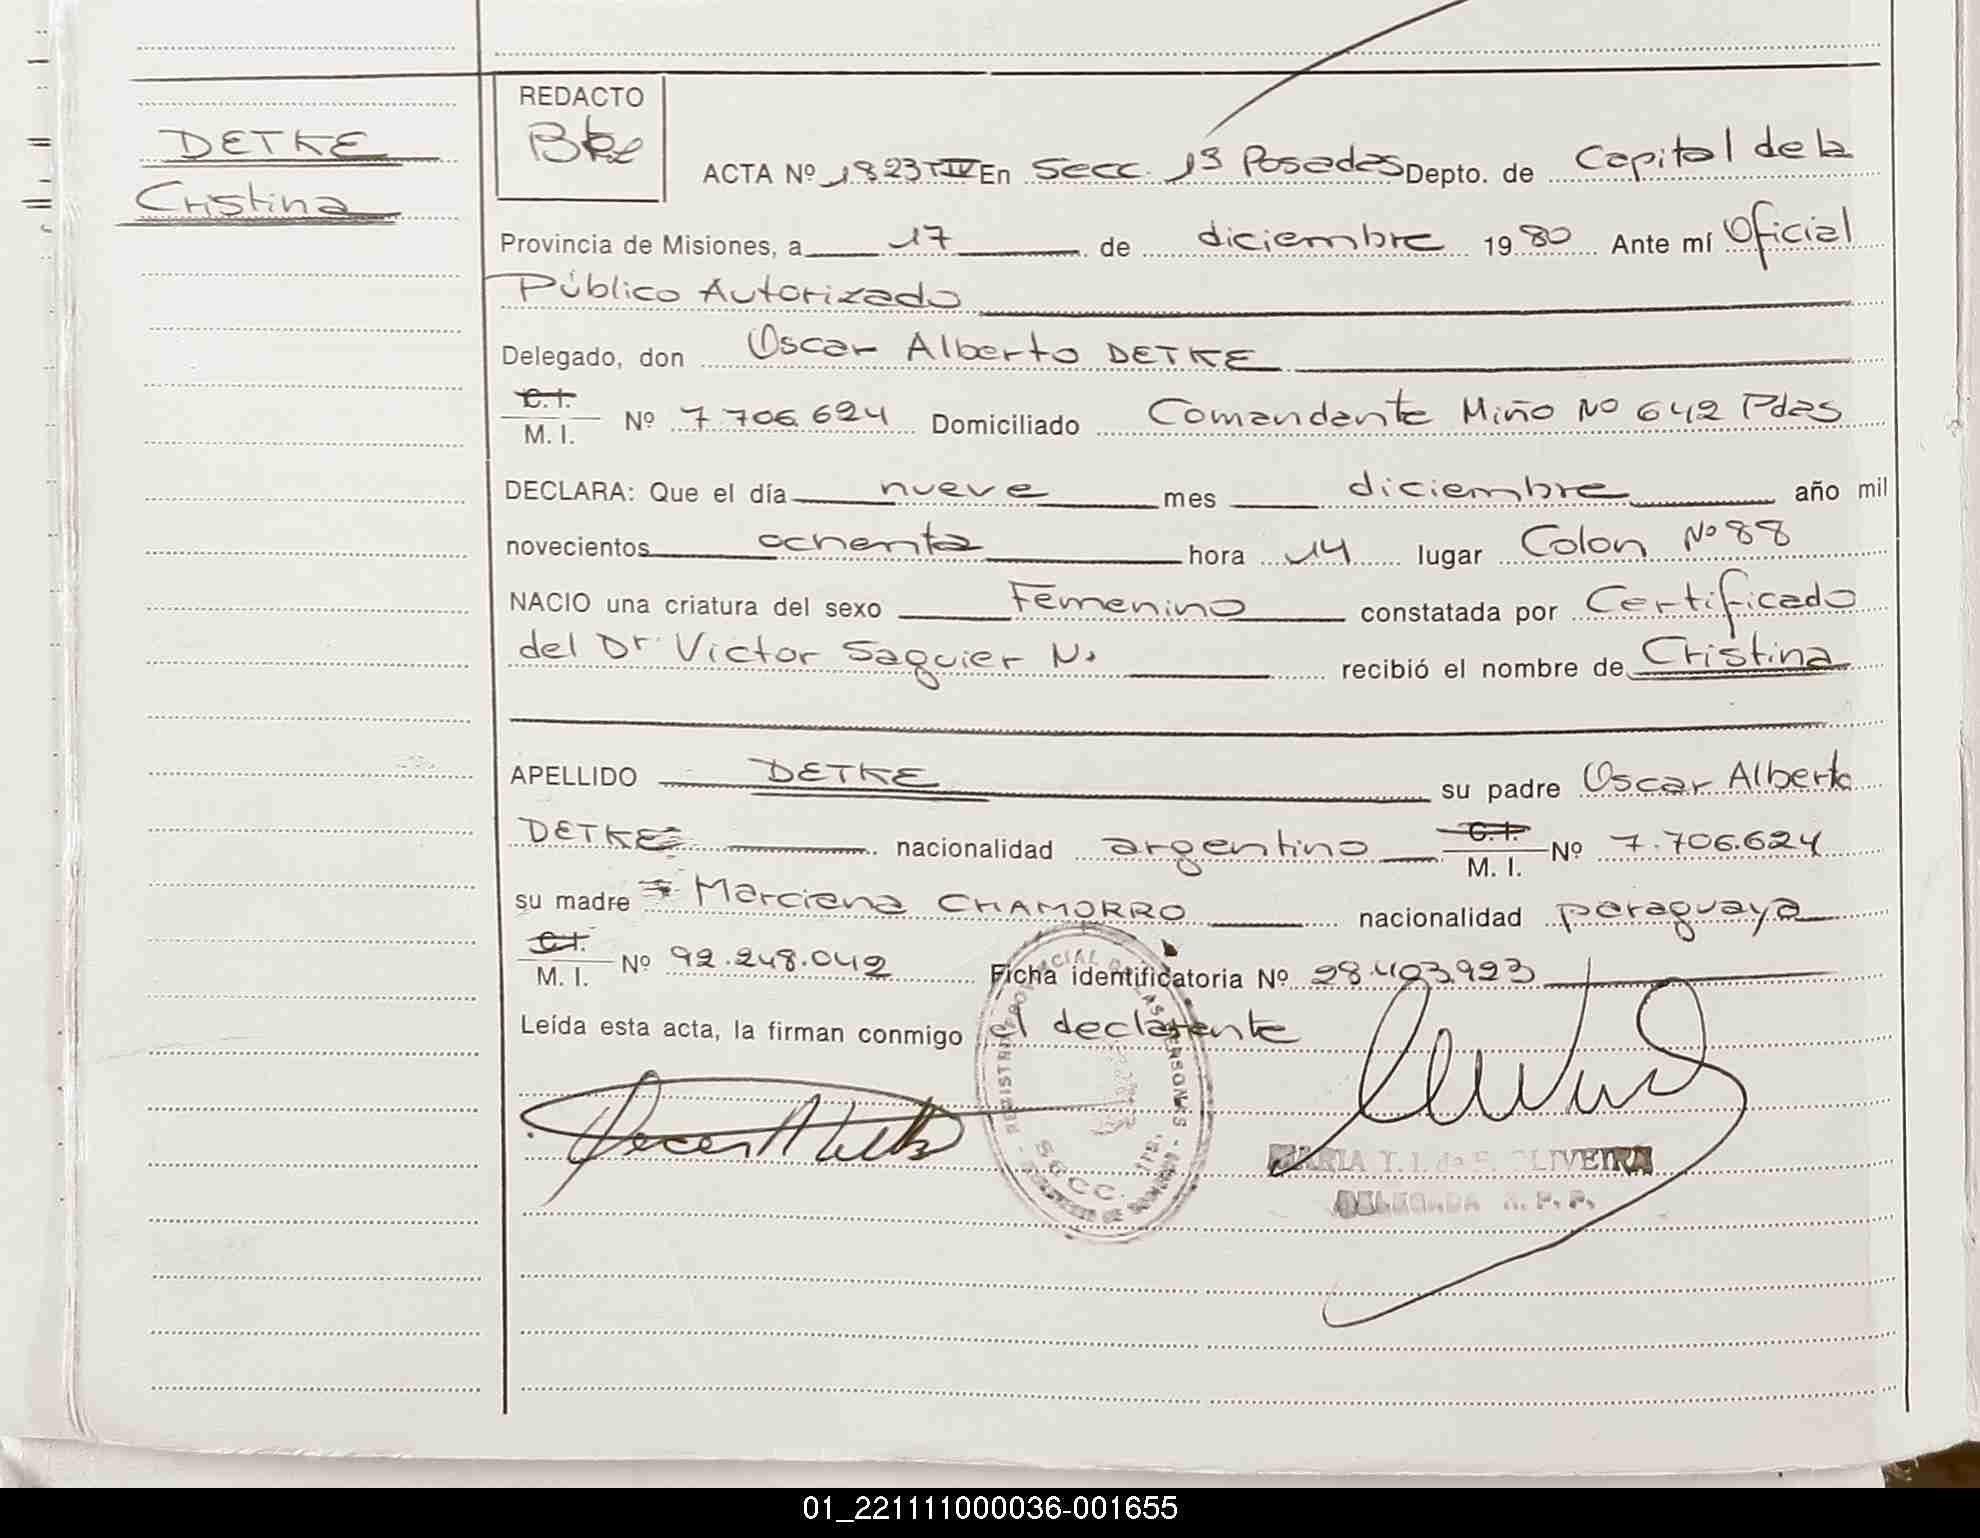 DETKE
Cristina
REDACTO
ACTA Nº 1823 TIV En Secc. 1ª Posadas Depto. de Capital de la
Provincia de Misiones, a 17 de diciembre 1980 Ante mí Oficial
Público Autorizado
Delegado, don Oscar Alberto DETKE
C.I.
M. I. Nº 7.706.624 Domiciliado Comandante Miño Nº 642 Pdas
DECLARA: Que el día nueve mes diciembre año mil
novecientos ochenta hora 14 lugar Colon Nº 88
NACIO una criatura del sexo Femenino constatada por Certificado
del Dr Victor Saguier N. recibió el nombre de Cristina
APELLIDO DETKE su padre Oscar Alberto
DETKE nacionalidad argentino C.I. M. I. Nº 7.706.624
su madre Marciana CHAMORRO nacionalidad paraguaya
C.I.
M. I. Nº 92.248.042 Ficha identificatoria Nº 28.403.923
Leída esta acta, la firman conmigo el declarante
MARIA T. I. de S. OLIVEIRA
DELEGADA R. P. P.
SECC.
01_221111000036-001655